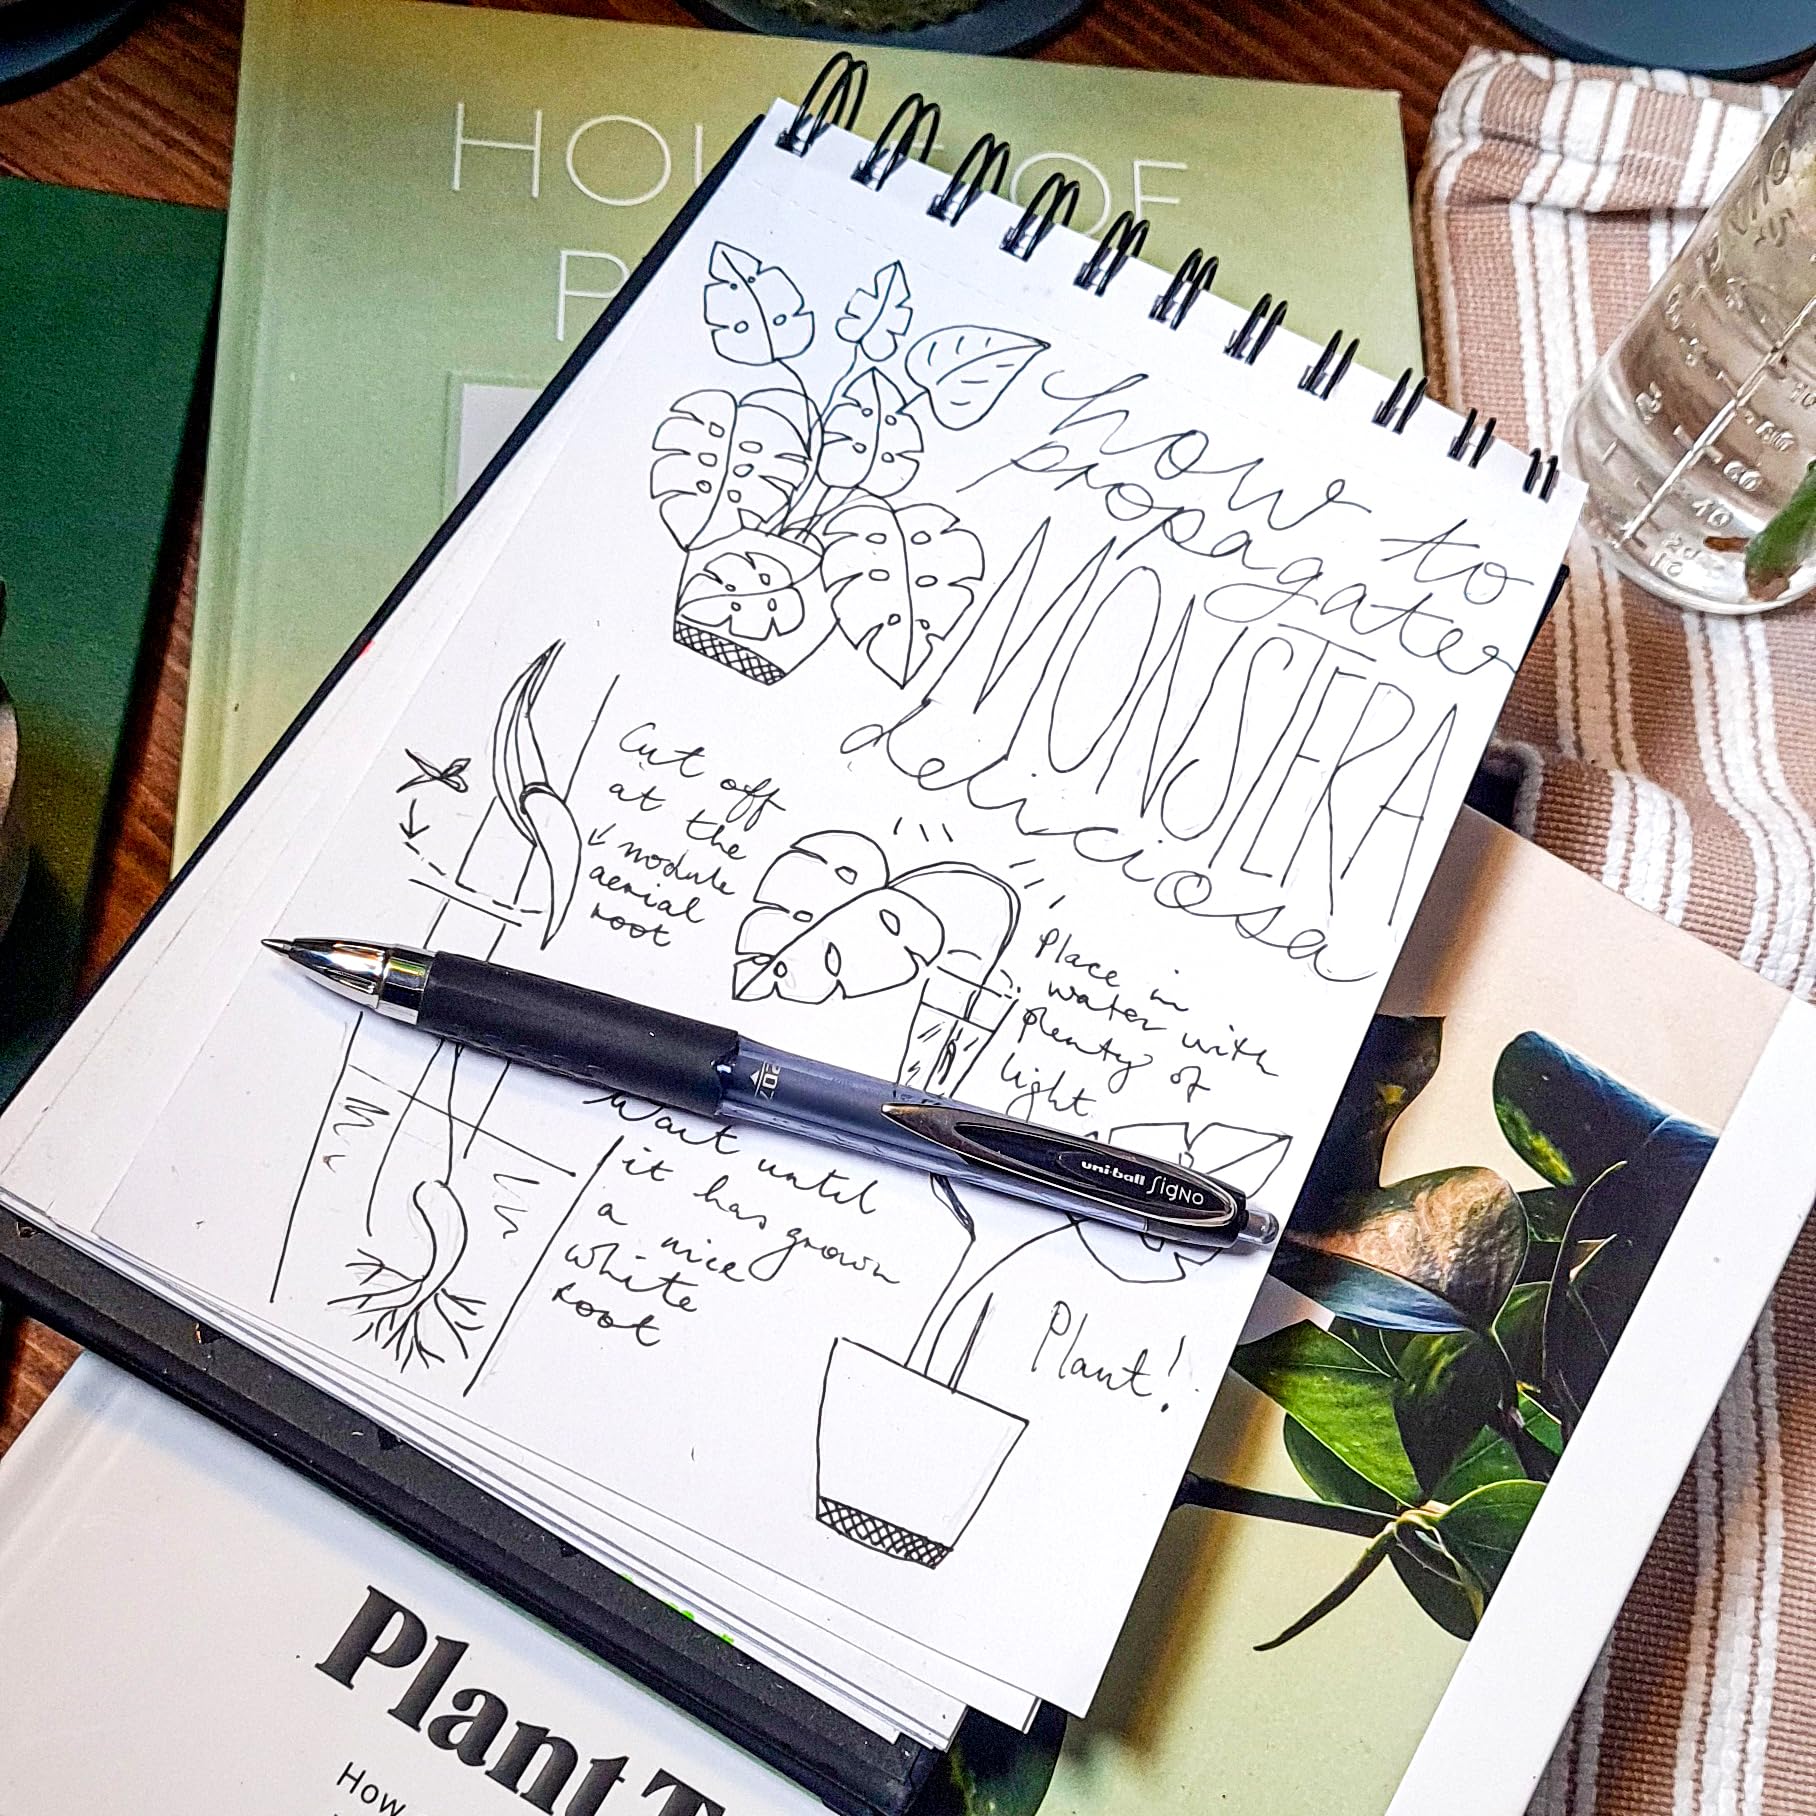 HOUSE OF
P
how to
propagate
MONSTERA
deliciosa
Cut off
at the
module
aerial
root
Place in
water with
plenty of
light.
Wait until
it has grown
a nice
white
root
Plant!
uni-ball SigNO
207
Plant T
How